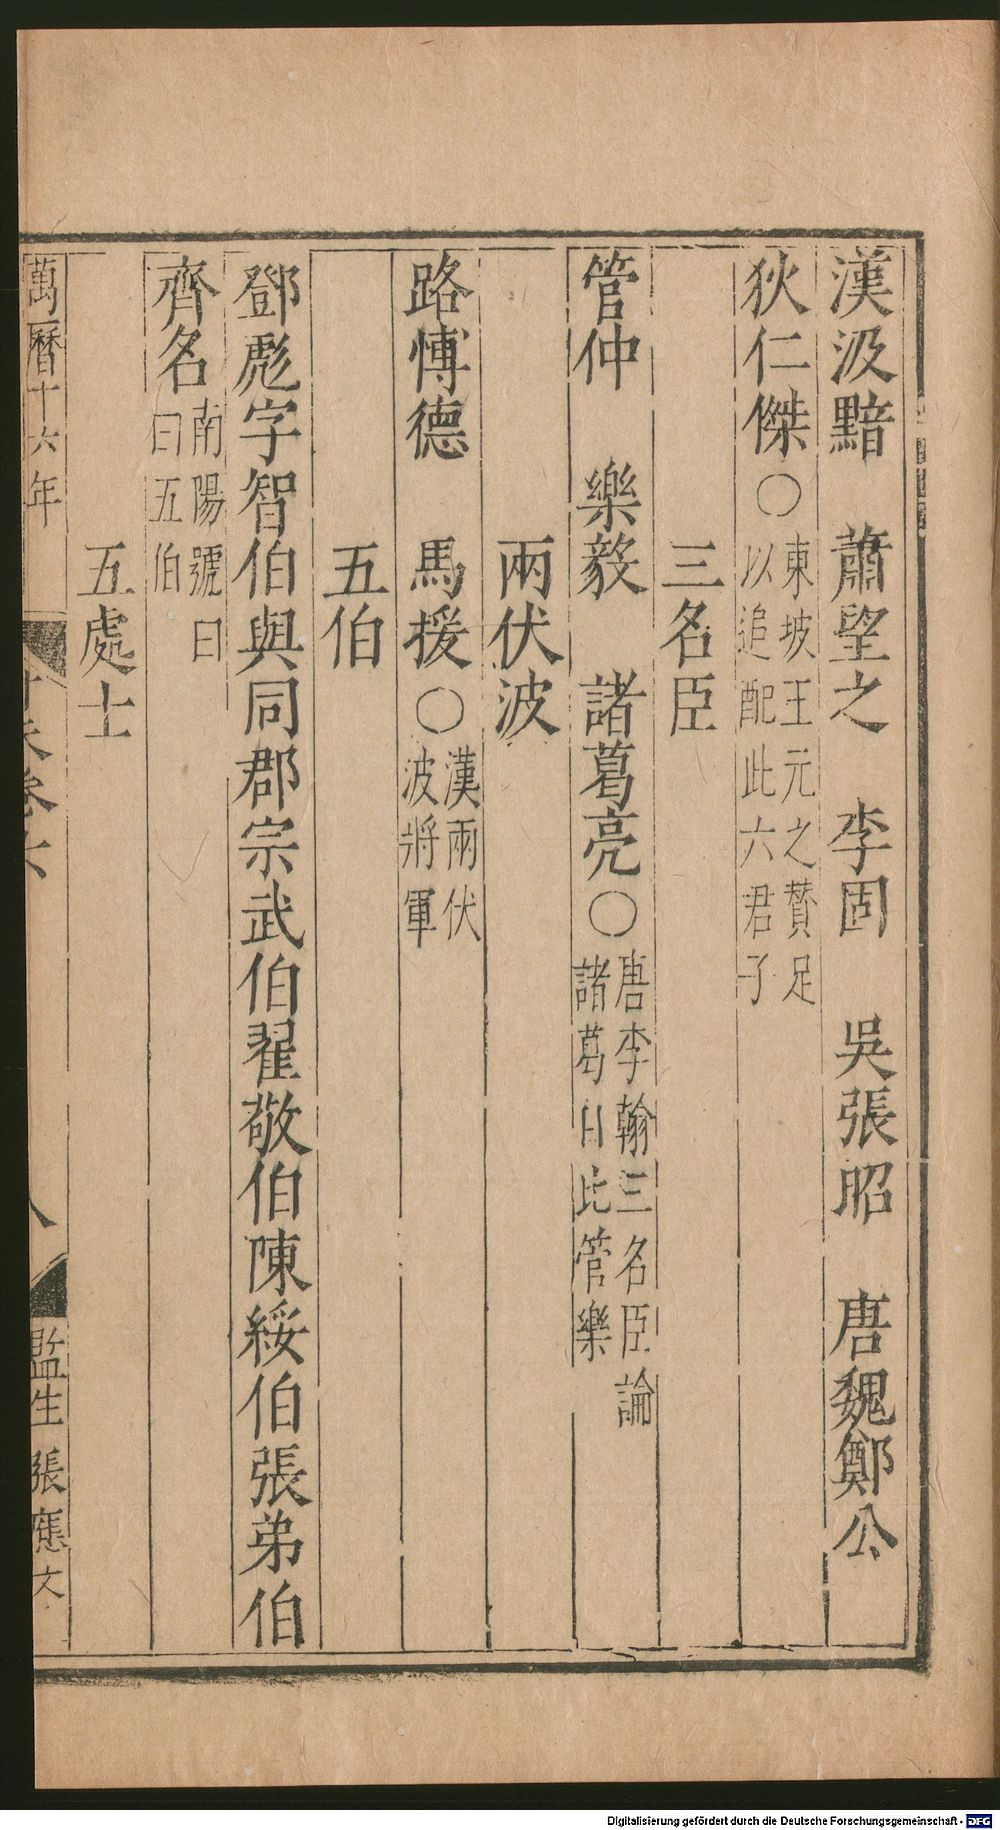 漢汲黯　蕭望之　李固　吳張昭　唐魏鄭公
狄仁傑〇東坡王元之贊足
以追配此六君子
三名臣
管仲　樂毅　諸葛亮〇唐李翰三名臣論
諸葛日比管樂
兩伏波
路博德　馬援〇漢兩伏
波將軍
五伯
鄧彪字智伯與同郡宗武伯翟敬伯陳綏伯張弟伯
齊名南陽號曰
曰五伯
五處士
萬曆十六年
卷六
八
監生張應文
Digitalisierung gefördert durch die Deutsche Forschungsgemeinschaft - DFG